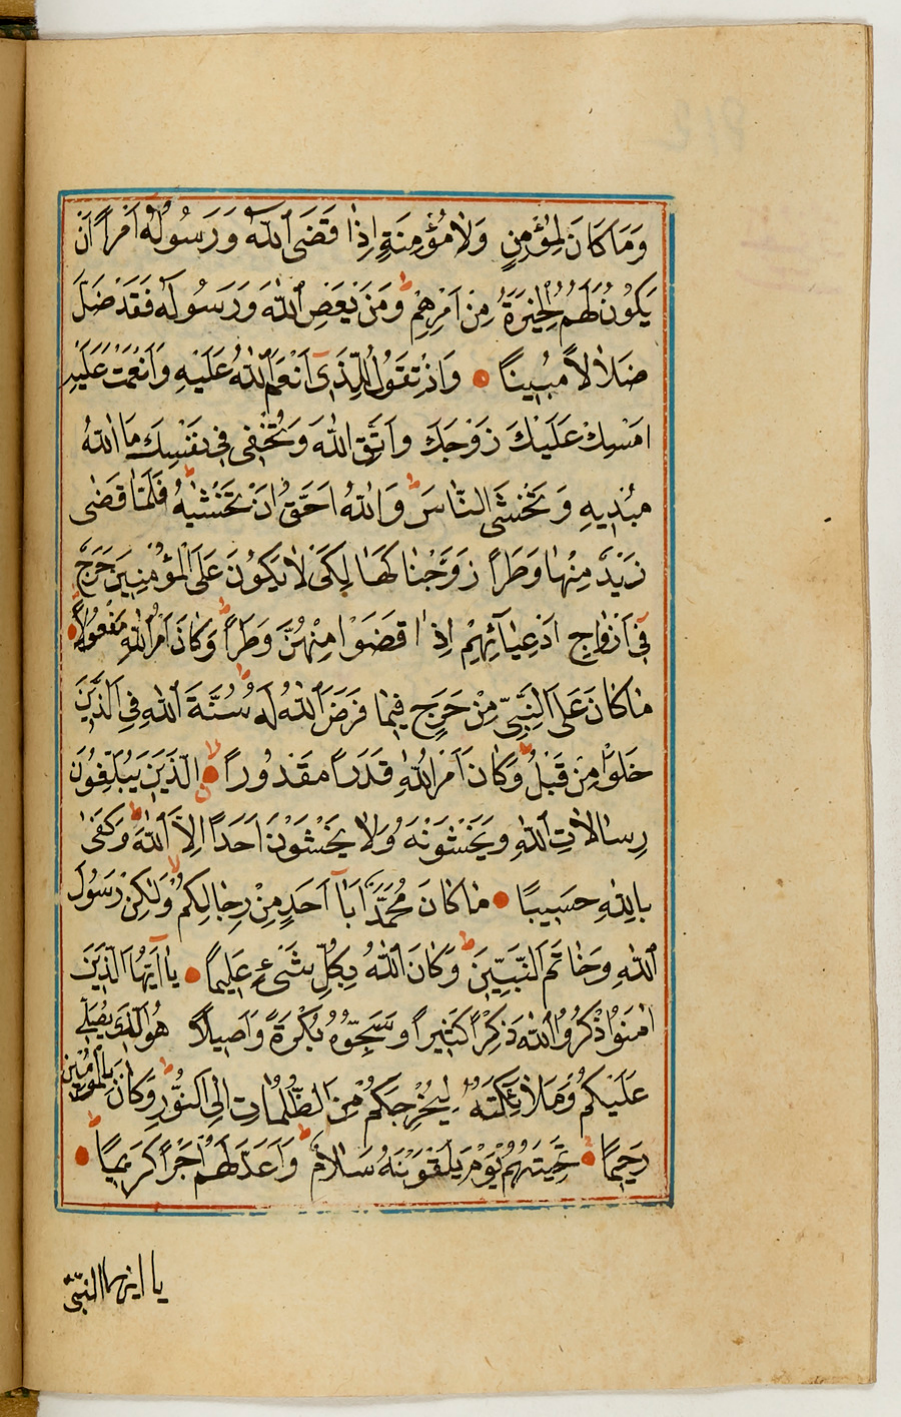 وَمَا كَانَ لِمُؤْمِنٍ وَلَا مُؤْمِنَةٍ اِذَا قَضَى اللّٰهُ وَرَسُولُهُ اَمْراً اَنْ
يَكُونَ لَهُمُ الْخِيَرَةُ مِنْ اَمْرِهِمْ ط وَمَنْ يَعْصِ اللّٰهَ وَرَسُولَهُ فَقَدْ ضَلَّ
ضَلَالاً مُبِيناً وَاِذْ تَقُولُ لِلَّذِى اَنْعَمَ اللّٰهُ عَلَيْهِ وَاَنْعَمْتَ عَلَيْهِ
اَمْسِكْ عَلَيْكَ زَوْجَكَ وَاتَّقِ اللّٰهَ وَتُخْفِى فِى نَفْسِكَ مَا اللّٰهُ
مُبْدِيهِ وَتَخْشَى النَّاسَ ط وَاللّٰهُ اَحَقُّ اَنْ تَخْشٰيهُ ط فَلَمَّا قَضٰى
زَيْدٌ مِنْهَا وَطَراً زَوَّجْنَا كَهَا لِكَىْ لَا يَكُونَ عَلَى الْمُؤْمِنِينَ حَرَجٌ
فِى اَزْوَاجِ اَدْعِيَآئِهِمْ اِذَا قَضَوْا مِنْهُنَّ وَطَراً ط وَكَانَ اَمْرُ اللّٰهِ مَفْعُولاً
مَا كَانَ عَلَى النَّبِىِّ مِنْ حَرَجٍ فِيمَا فَرَضَ اللّٰهُ لَهُ ط سُنَّةَ اللّٰهِ فِى الَّذِينَ
خَلَوْا مِنْ قَبْلُ ط وَكَانَ اَمْرُ اللّٰهِ قَدَراً مَقْدُوراً لا الَّذِينَ يُبَلِّغُونَ
رِسَالَاتِ اللّٰهِ وَيَخْشَوْنَهُ وَلَا يَخْشَوْنَ اَحَداً اِلَّا اللّٰهَ ط وَكَفٰى
بِاللّٰهِ حَسِيباً مَا كَانَ مُحَمَّدٌ اَبَآ اَحَدٍ مِنْ رِجَالِكُمْ وَلٰكِنْ رَسُولَ
اللّٰهِ وَخَاتَمَ النَّبِيِّينَ ط وَكَانَ اللّٰهُ بِكُلِّ شَىْءٍ عَلِيماً يَا اَيُّهَا الَّذِينَ
اٰمَنُوا اذْكُرُوا اللّٰهَ ذِكْراً كَثِيراً وَسَبِّحُوهُ بُكْرَةً وَاَصِيلاً هُوَ الَّذِى يُصَلِّى
عَلَيْكُمْ وَمَلَائِكَتُهُ لِيُخْرِجَكُمْ مِنَ الظُّلُمَاتِ اِلَى النُّورِ ط وَكَانَ بِالْمُؤْمِنِينَ
رَحِيماً تَحِيَّتُهُمْ يَوْمَ يَلْقَوْنَهُ سَلَامٌ ط وَاَعَدَّ لَهُمْ اَجْراً كَرِيماً ط
يا ايها النبي